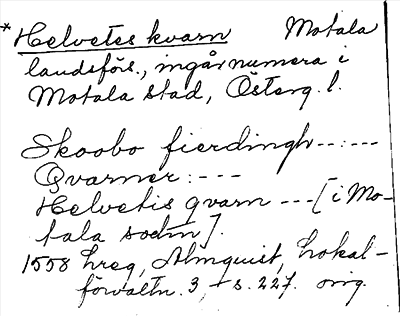 * Helvetes kvarn Motala
landsförs., ingår numera i
Motala stad, Österg. l.
Skoobo fierdingh --:---
Qvarner: ---
Helvetis qvarn --- [i Mo-
tala sodn].
1558 hreg, Almquist, Lokal-
förvaltn. 3, s. 227. orig.